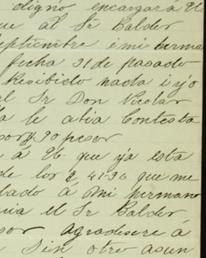 digno encargará El
que al Sr Balder
Septiembre é mi herma
fecha 21 de pasado
Recibido nada i yo
el Sr Don Nicolas
a le atia Contesta
por 90 pesos
a V. que ya esta
de los 41.36 que me
dado á Mi hermano
nia el Sr Balder
sor agradesere á
Sin otro asun